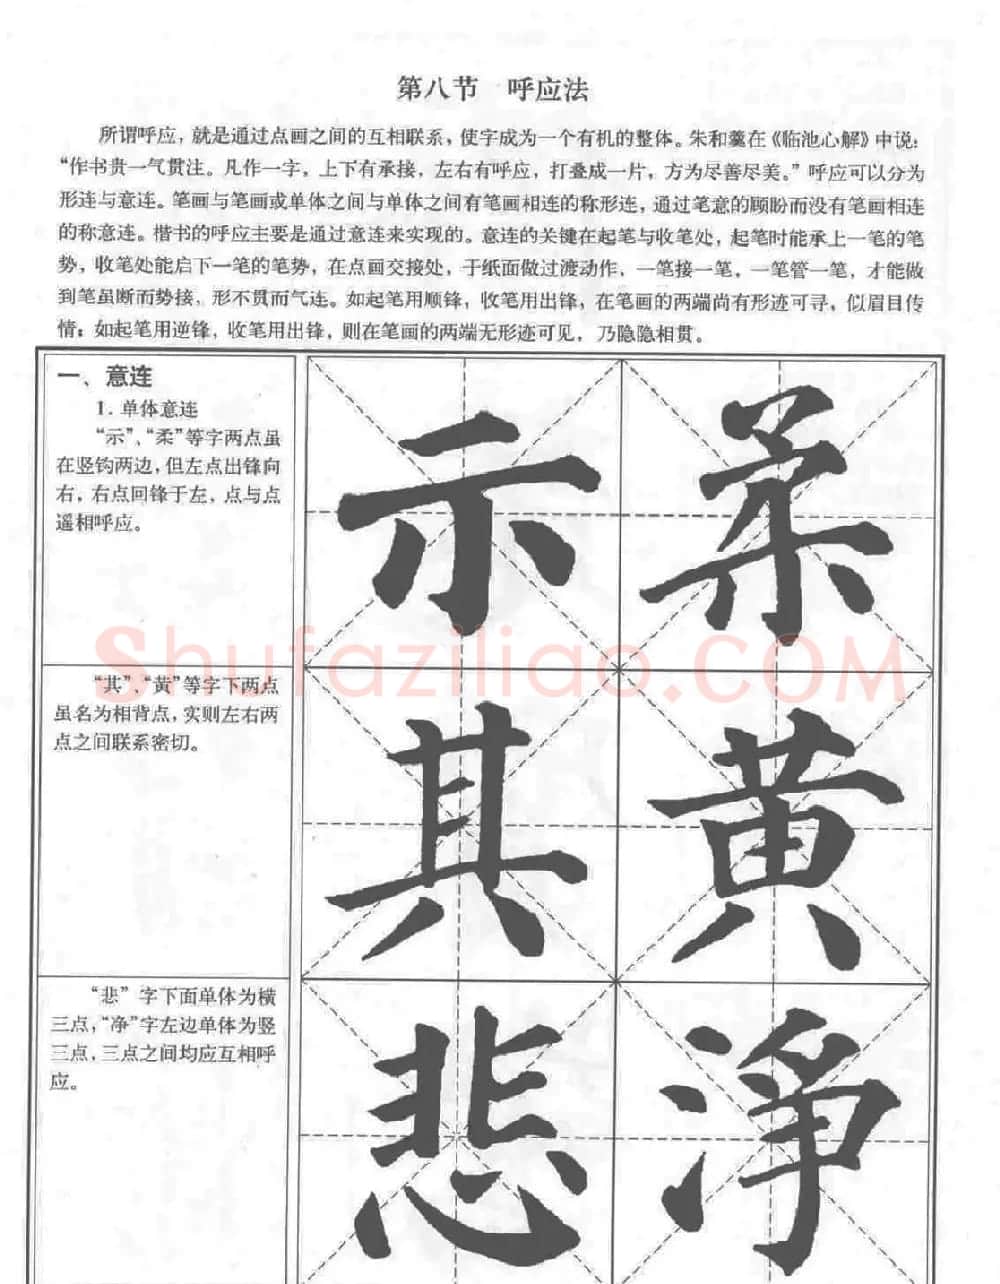 第八节 呼应法
所谓呼应，就是通过点画之间的互相联系，使字成为一个有机的整体。朱和羹在《临池心解》中说：
“作书贵一气贯注。凡作一字，上下有承接，左右有呼应，打叠成一片，方为尽善尽美。”呼应可以分为
形连与意连。笔画与笔画或单体之间与单体之间有笔画相连的称形连，通过笔意的顾盼而没有笔画相连
的称意连。楷书的呼应主要是通过意连来实现的。意连的关键在起笔与收笔处，起笔时能承上一笔的笔
势，收笔处能启下一笔的笔势，在点画交接处，于纸面做过渡动作，一笔接一笔，一笔管一笔，才能做
到笔虽断而势接，形不贯而气连。如起笔用顺锋，收笔用出锋，在笔画的两端尚有形迹可寻，似眉目传
情；如起笔用逆锋，收笔用出锋，则在笔画的两端无形迹可见，乃隐隐相贯。
一、意连
1. 单体意连
“示”、“柔”等字两点虽
在竖钩两边，但左点出锋向
右，右点回锋于左，点与点
遥相呼应。
示 柔
“其”、“黄”等字下两点
虽名为相背点，实则左右两
点之间联系密切。
其 黄
“悲”字下面单体为横
三点，“净”字左边单体为竖
三点，三点之间均应互相呼
应。
悲 淨
Shufaziliao.COM